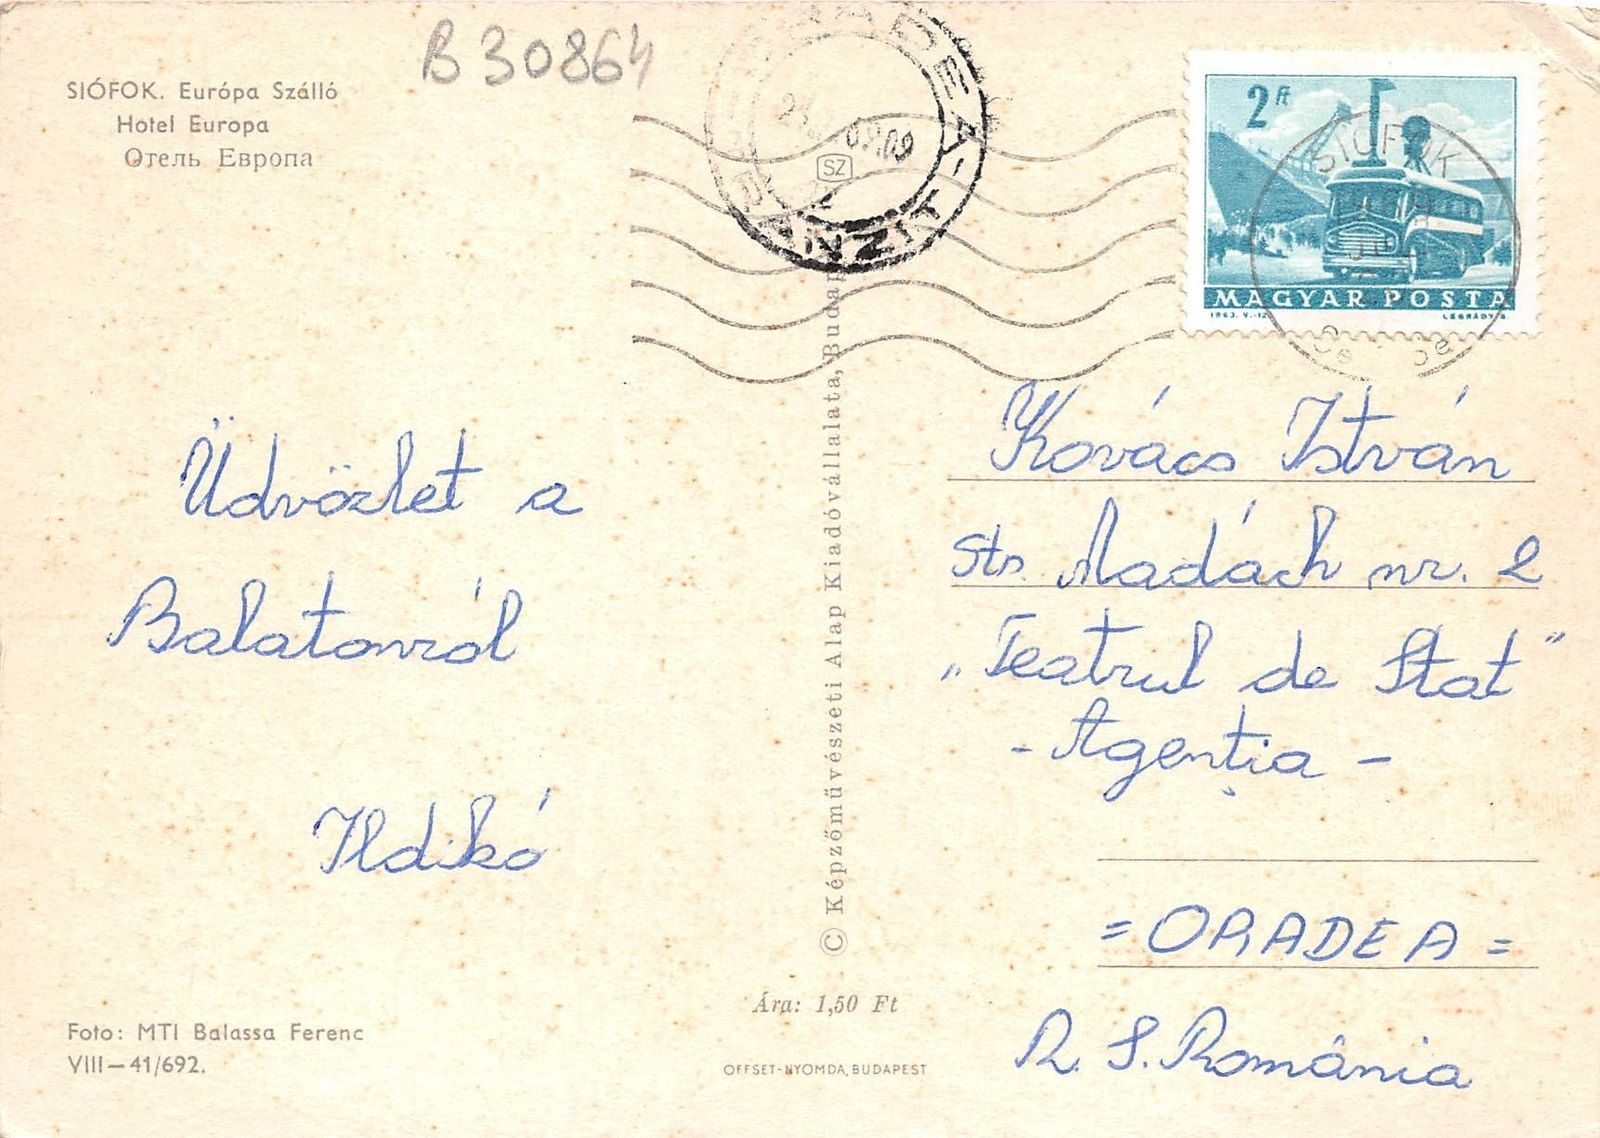 B 30864
SIÓFOK. Európa Szálló
Hotel Europa
Отель Европа
ORADEA-TRANZIT
09.09
SZ
2 Ft
MAGYAR POSTA
1963. V.-12.
LÉGRÁDY S.
SIÓFOK
Üdvözlet a
Balatonról
Ildikó
Kovács István
str. Madách nr. 2
„Teatrul de Stat”
- Agenția -
= ORADEA =
R. S. România
© Képzőművészeti Alap Kiadóvállalata, Budapest
Ára: 1,50 Ft
Foto: MTI Balassa Ferenc
VIII—41/692.
OFFSET-NYOMDA, BUDAPEST